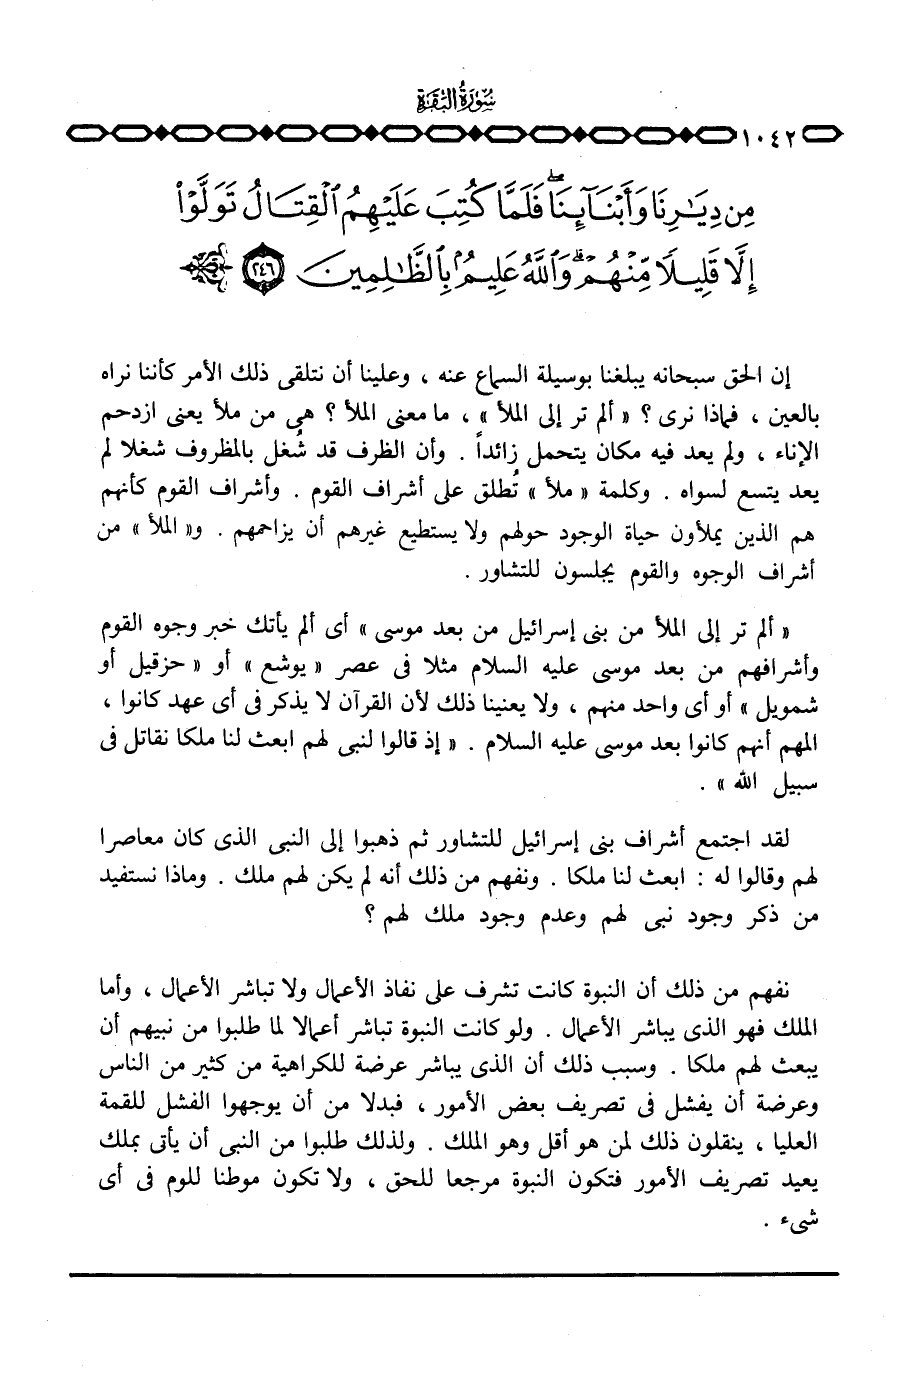 سُورَةُ البَقَرَة
١٠٤٢
مِن دِيَٰرِنَا وَأَبْنَآئِنَا ۖ فَلَمَّا كُتِبَ عَلَيْهِمُ ٱلْقِتَالُ تَوَلَّوْا۟
إِلَّا قَلِيلًا مِّنْهُمْ ۗ وَٱللَّهُ عَلِيمٌۢ بِٱلظَّٰلِمِينَ ٢٤٦
إن الحق سبحانه يبلغنا بوسيلة السماع عنه ، وعلينا أن نتلقى ذلك الأمر كأننا نراه
بالعين ، فماذا نرى ؟ « ألم تر إلى الملأ » ، ما معنى الملأ ؟ هى من ملأ يعنى ازدحم
الإناء ، ولم يعد فيه مكان يتحمل زائداً . وأن الظرف قد شُغل بالمظروف شغلا لم
يعد يتسع لسواه . وكلمة « ملأ » تُطلق على أشراف القوم . وأشراف القوم كأنهم
هم الذين يملأون حياة الوجود حولهم ولا يستطيع غيرهم أن يزاحمهم . و« الملأ » من
أشراف الوجوه والقوم يجلسون للتشاور .
« ألم تر إلى الملأ من بنى إسرائيل من بعد موسى » أى ألم يأتك خبر وجوه القوم
وأشرافهم من بعد موسى عليه السلام مثلا فى عصر « يوشع » أو « حزقيل أو
شمويل » أو أى واحد منهم ، ولا يعنينا ذلك لأن القرآن لا يذكر فى أى عهد كانوا ،
المهم أنهم كانوا بعد موسى عليه السلام . « إذ قالوا لنبى لهم ابعث لنا ملكا نقاتل فى
سبيل الله » .
لقد اجتمع أشراف بنى إسرائيل للتشاور ثم ذهبوا إلى النبى الذى كان معاصرا
لهم وقالوا له : ابعث لنا ملكا . ونفهم من ذلك أنه لم يكن لهم ملك . وماذا نستفيد
من ذكر وجود نبى لهم وعدم وجود ملك لهم ؟
نفهم من ذلك أن النبوة كانت تشرف على نفاذ الأعمال ولا تباشر الأعمال ، وأما
الملك فهو الذى يباشر الأعمال . ولو كانت النبوة تباشر أعمالا لما طلبوا من نبيهم أن
يبعث لهم ملكا . وسبب ذلك أن الذى يباشر عرضة للكراهية من كثير من الناس
وعرضة أن يفشل فى تصريف بعض الأمور ، فبدلا من أن يوجهوا الفشل للقمة
العليا ، ينقلون ذلك لمن هو أقل وهو الملك . ولذلك طلبوا من النبى أن يأتى بملك
يعيد تصريف الأمور فتكون النبوة مرجعا للحق ، ولا تكون موطنا للوم فى أى
شىء .